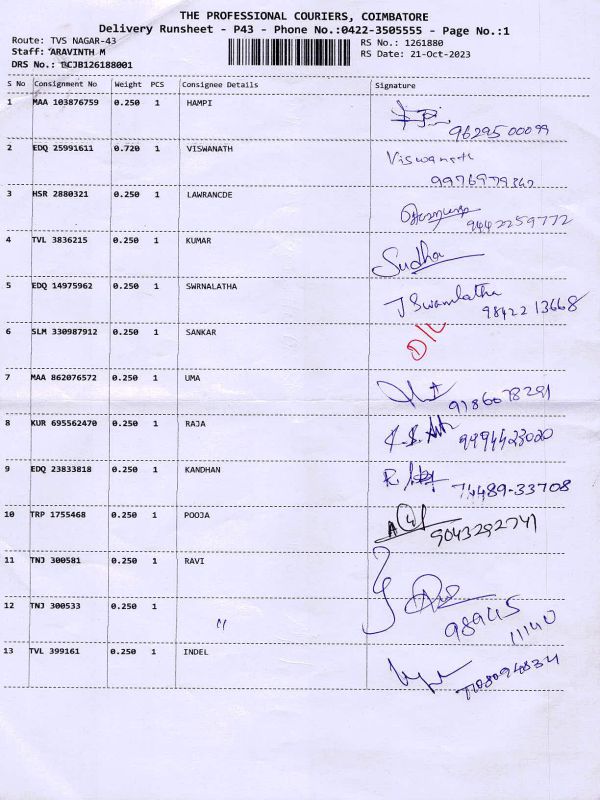 THE PROFESSIONAL COURIERS, COIMBATORE
Delivery Runsheet - P43 - Phone No.:0422-3505555 - Page No.:1
Route: TVS NAGAR-43
RS No.: 1261880
Staff: ARAVINTH M
RS Date: 21-Oct-2023
DRS No.: BCJB126188001
S No Consignment No Weight PCS Consignee Details Signature
1 MAA 103876759 0.250 1 HAMPI
9629500099
2 EDQ 25991611 0.720 1 VISWANATH Viswanath
9976979362
3 HSR 2880321 0.250 1 LAWRANCDE
9442259772
4 TVL 3836215 0.250 1 KUMAR Sudha
5 EDQ 14975962 0.250 1 SWRNALATHA J Swarnlatha
98422 13668
6 SLM 330987912 0.250 1 SANKAR D/L
7 MAA 862076572 0.250 1 UMA
9786078291
8 KUR 695562470 0.250 1 RAJA
9994423020
9 EDQ 23833818 0.250 1 KANDHAN
74489-33708
10 TRP 1755468 0.250 1 POOJA
9043292741
11 TNJ 300581 0.250 1 RAVI
12 TNJ 300533 0.250 1 "
98945
11140
13 TVL 399161 0.250 1 INDEL